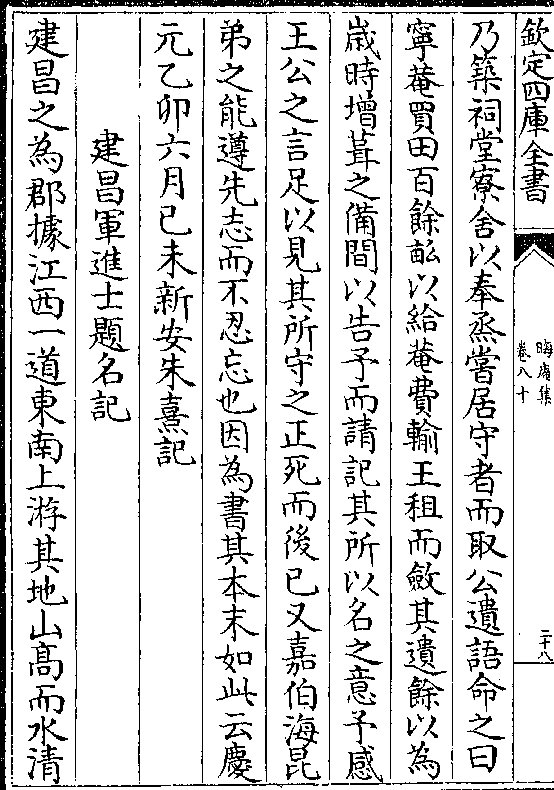 欽定四庫全書
晦庵集
卷八十
二十八
乃築祠堂寮舍以奉烝嘗居守者而取公遺語命之曰
寧菴買田百餘畝以給菴費輸王租而斂其遺餘以為
歳時增葺之備間以告予而請記其所以名之意予感
王公之言足以見其所守之正死而後已又嘉伯海昆
弟之能遵先志而不忍忘也因為書其本末如此云慶
元乙卯六月已未新安朱熹記
建昌軍進士題名記
建昌之為郡據江西一道東南上游其地山髙而水清